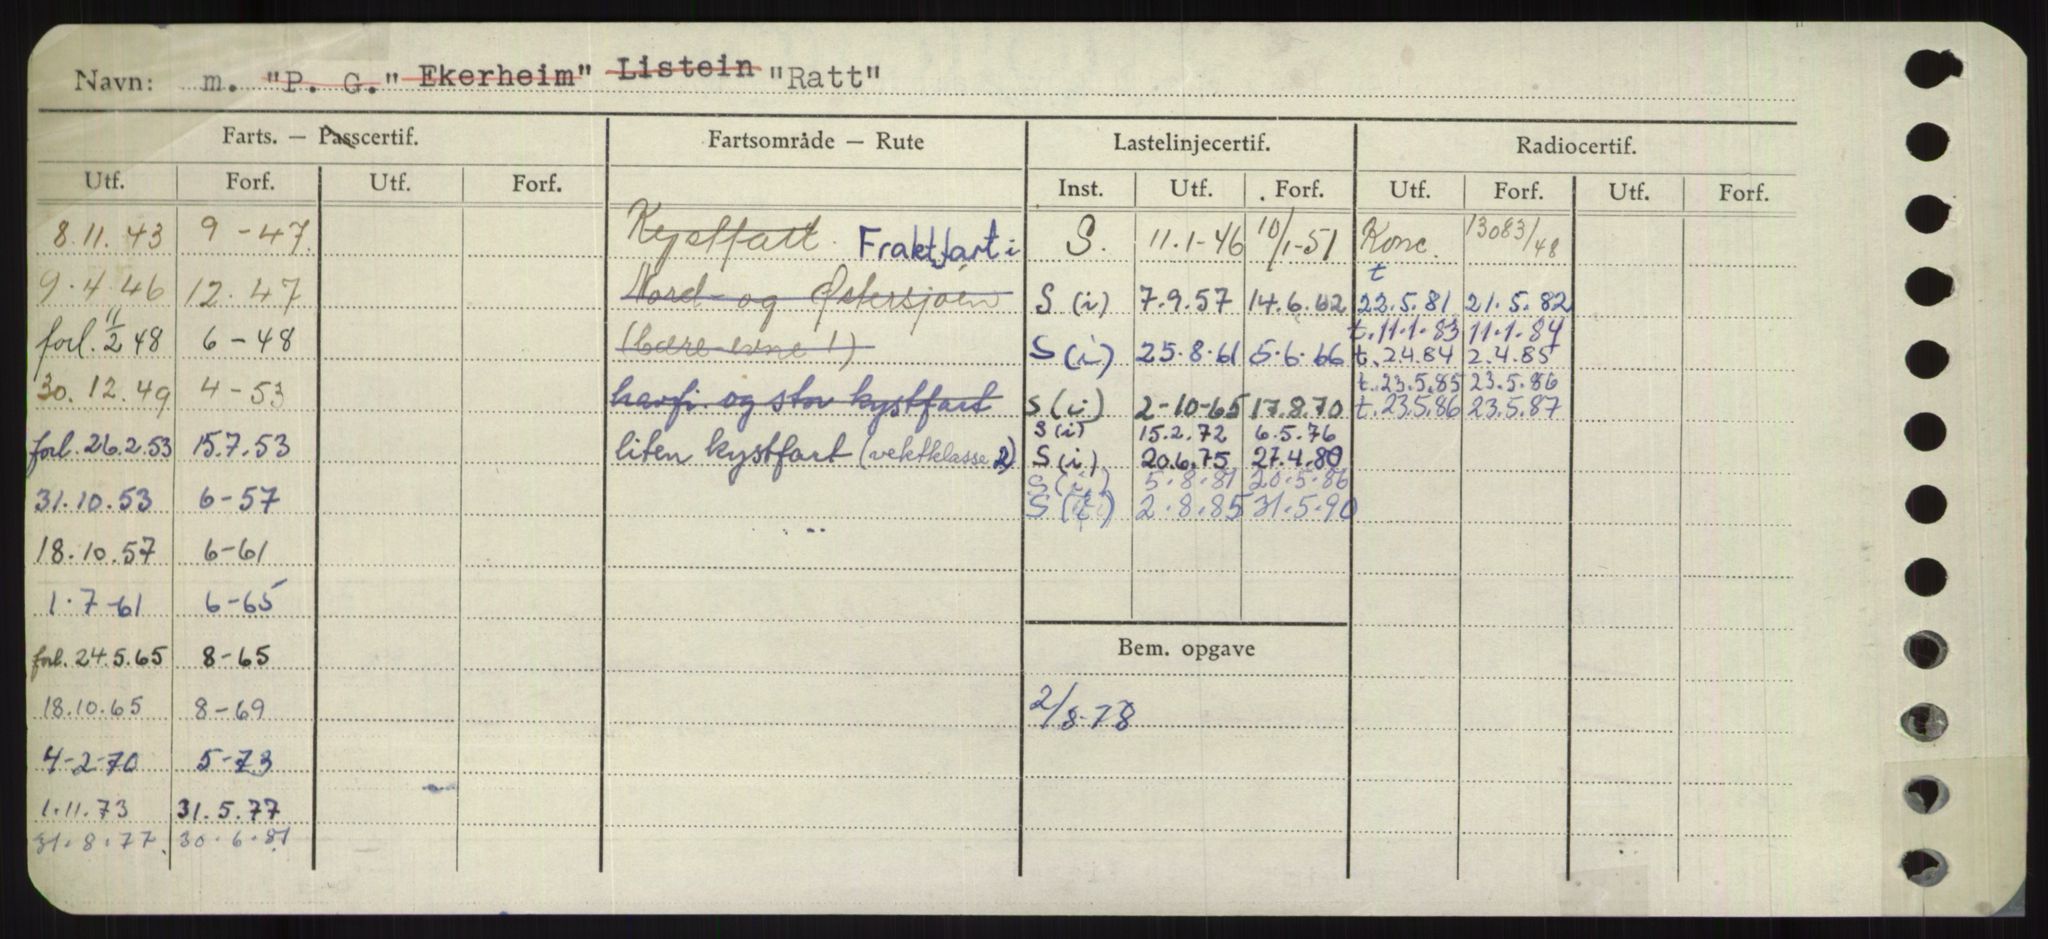 Navn: m. "P. G." Ekerheim" Listein "Ratt"
Farts. — Passcertif. Fartsområde — Rute Lastelinjecertif. Radiocertif.
Utf. Forf. Utf. Forf. Inst. Utf. Forf. Utf. Forf. Utf. Forf.
8.11.43 9-47. Kystfart. Fraktfart i S. 11.1-46 10/1-51 Konc. 13083/48
9.4.46 12.47 Nord- og Østersjøen S (i) 7.9.57 14.6.62 t 22.5.81 21.5.82
t. 11.1.83 11.1.84
forl. 11/2 48 6-48 (bære evne !) S (i) 25.8.61 5.6.66 t. 2.4.84 2.4.85
t. 23.5.85 23.5.86
30.12.49 4-53 havfi. og stor kystfart S (i) 2-10-65 17.8.70 t. 23.5.86 23.5.87
S (i) 15.2.72 6.5.76
forl. 26.2.53 15.7.53 liten kystfart (vektklasse 2) S (i) 20.6.75 27.4.80
S (i) 5.8.81 20.5.86
31.10.53 6-57 S (i) 2.8.85 31.5.90
18.10.57 6-61
1.7-61 6-65
forl. 24.5.65 8-65 Bem. opgave
18.10.65 8-69 2/8-78
4-2-70 5-73
1.11.73 31.5.77
31.8.77. 30.6.81